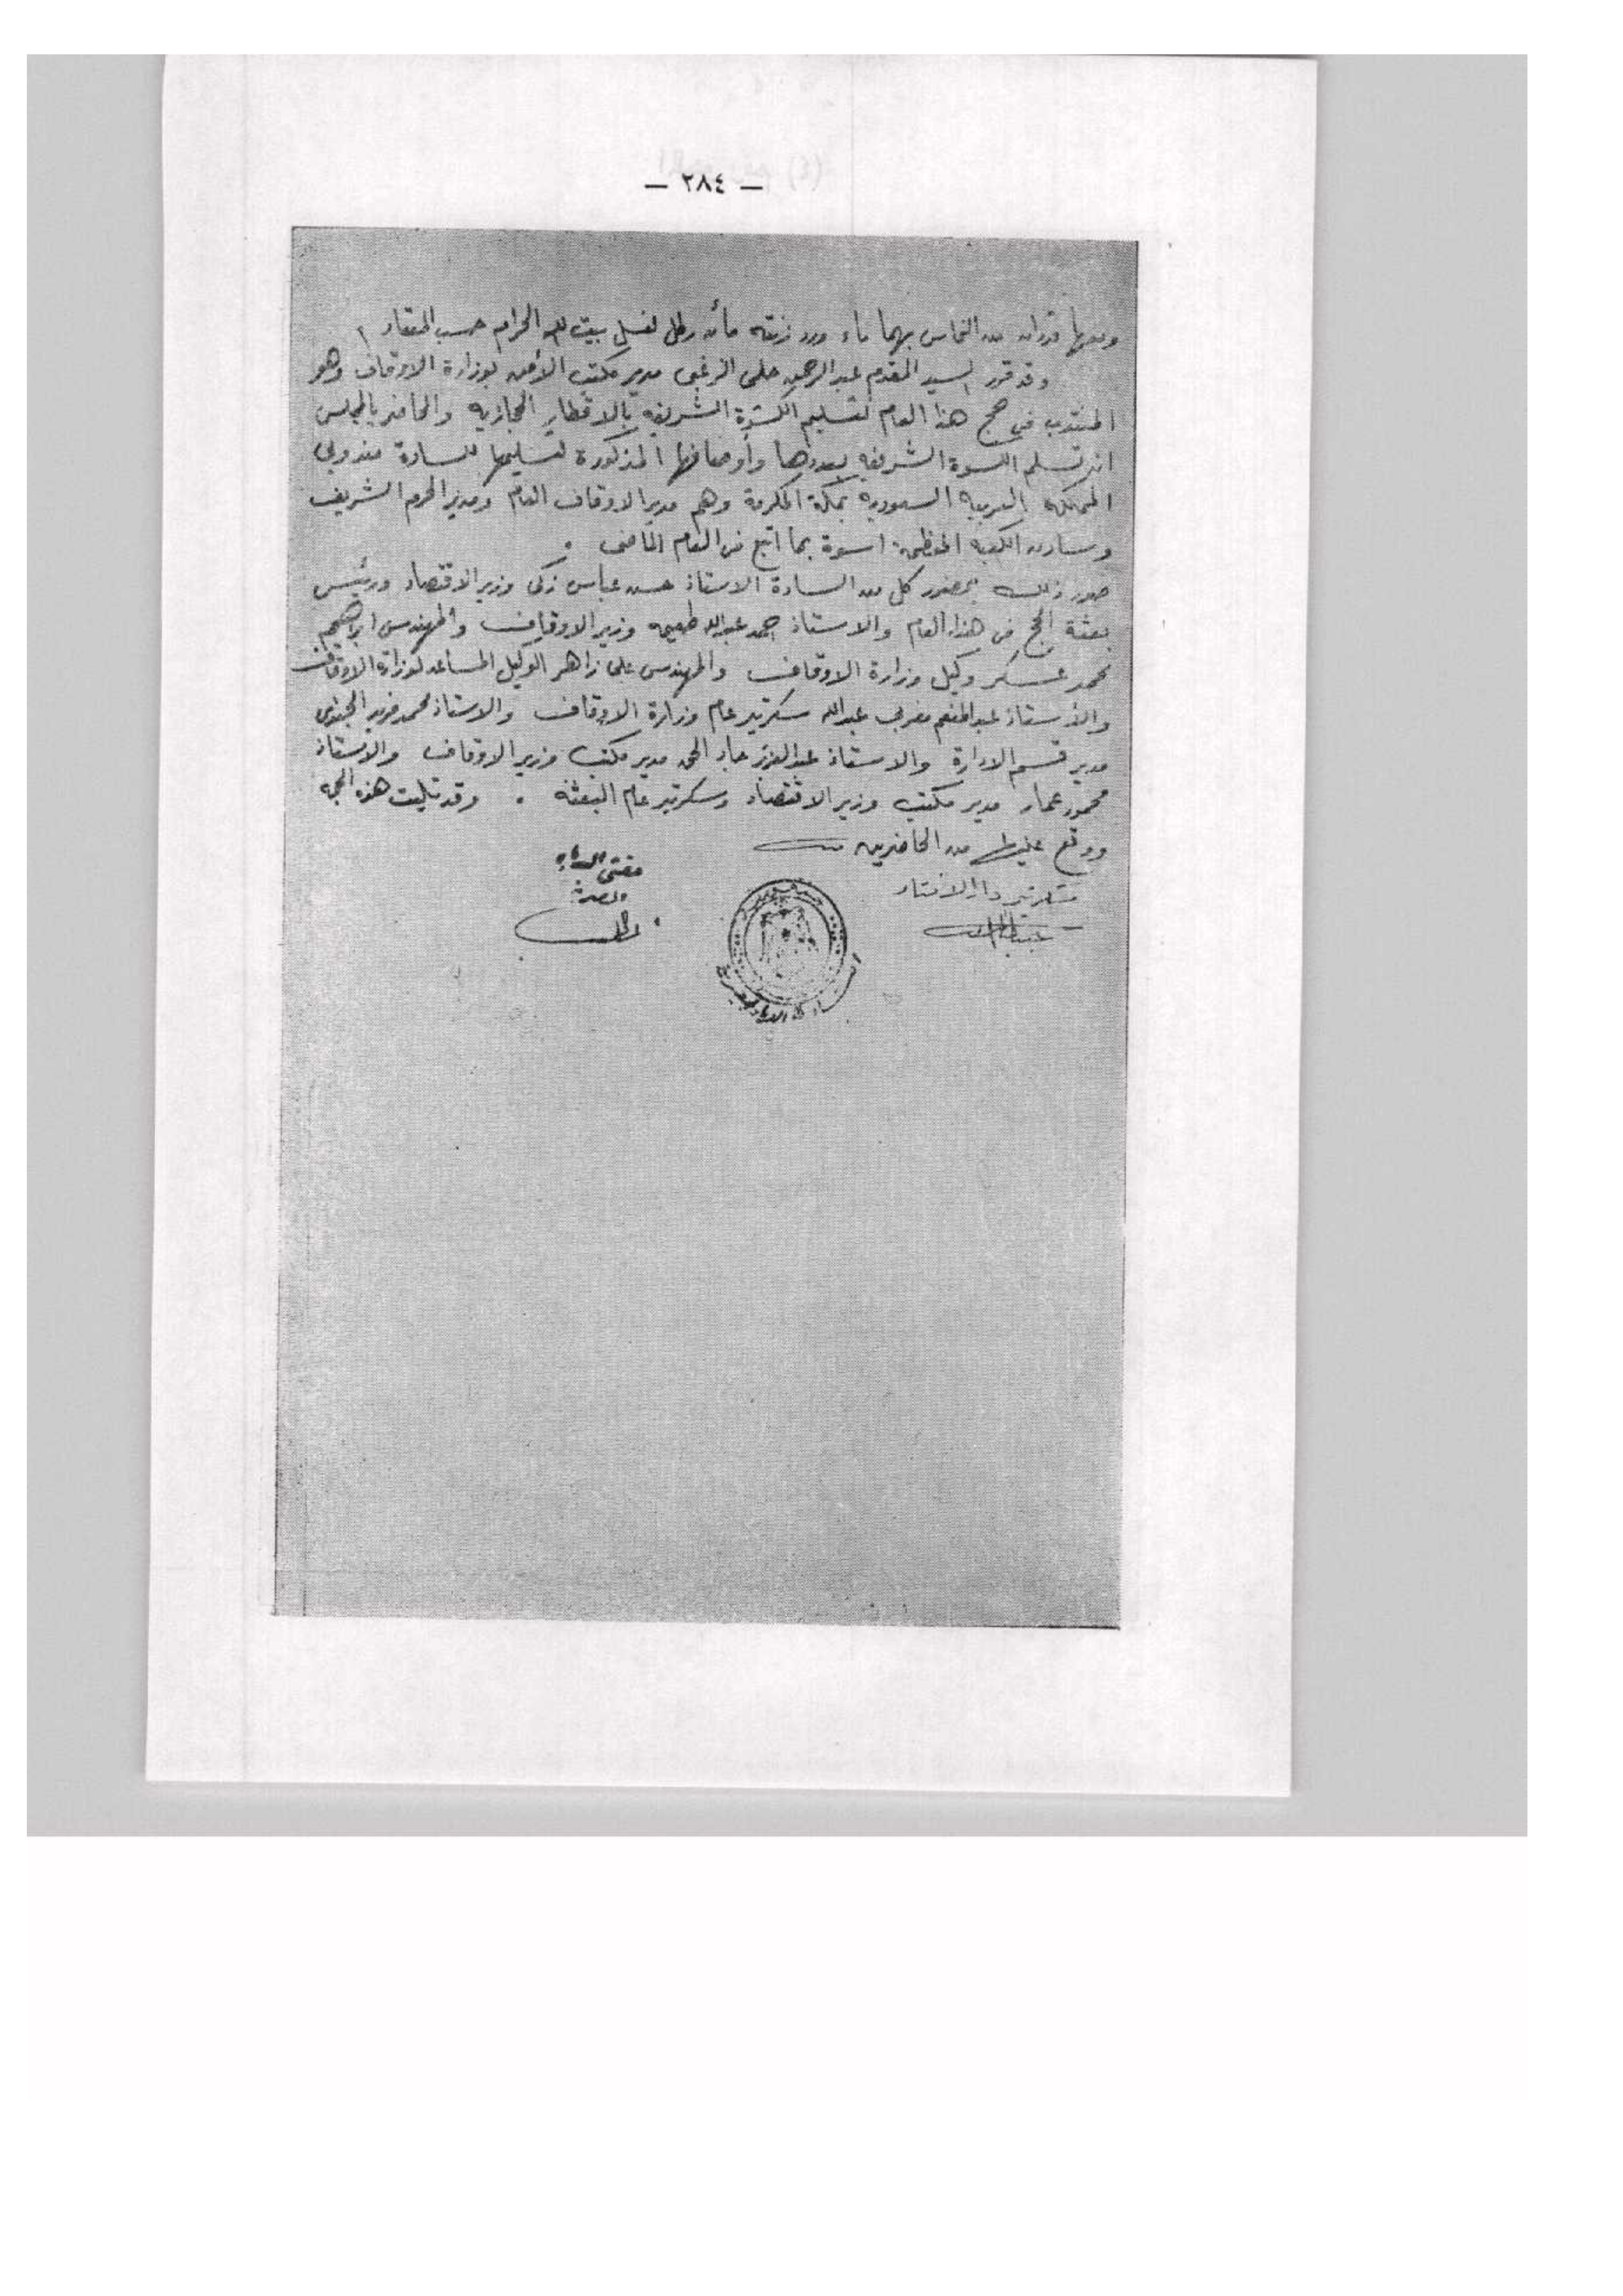 — ٢٨٤ —
ومعها قدران من النحاس بهما ماء ورد زنته مائة رطل لغسل بيت الله الحرام حسب المعتاد
وقد قرر السيد المقدم عبدالرحمن حلمى الزغبى مدير مكتب الأمن لوزارة الاوقاف وهو
المنتدب فى حج هذا العام لتسليم الكسوة الشريفة بالاقطار الحجازية والحاضر بالمجلس
انه تسلم الكسوة الشريفة بعددها وأوصافها المذكورة لتسليمها للسادة مندوبى
المملكة العربية السعودية بمكة المكرمة وهم مدير الاوقاف العام ومدير الحرم الشريف
وسادن الكعبة المعظمة اسوة بما اتبع فى العام الماضى .
صدر ذلك بحضور كل من السادة الاستاذ حسن عباس زكى وزير الاقتصاد ورئيس
بعثة الحج فى هذا العام والاستاذ احمد عبدالله طعيمه وزير الاوقاف والمهندس ابراهيم
محمد عسكر وكيل وزارة الاوقاف والمهندس على زاهر الوكيل المساعد لوزارة الاوقاف
والاستاذ عبدالمنعم مغربى عبدالله سكرتير عام وزارة الاوقاف والاستاذ محمد فريد
مدير قسم الادارة والاستاذ عبدالعزيز جاد الحق مدير مكتب وزير الاوقاف والاستاذ
محمود عمار مدير مكتب وزير الاقتصاد وسكرتير عام البعثة . وقد تليت هذه الحجة
ووقع عليها من الحاضرين
سكرتير دار الافتاء
مفتى الديار
المصرية